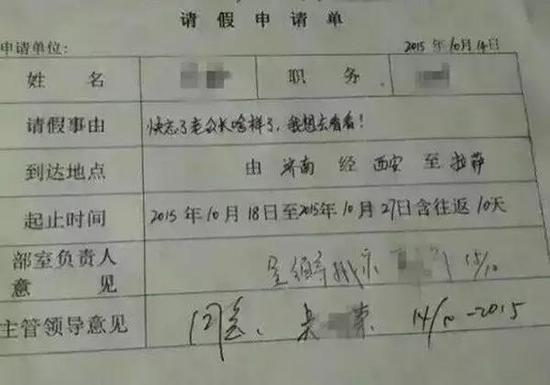 请假申请单
申请单位: 2015年10月14日
姓名 职务
请假事由 快忘了老公长啥样了,我想去看看!
到达地点 由 济南 经 西安 至 拉萨
起止时间 2015年10月18日至2015年10月27日含往返10天
部室负责人
意见 15/10
主管领导意见 同意. 14/10-2015